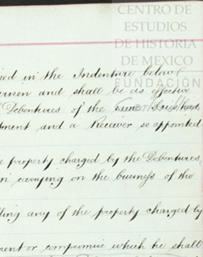 CENTRO DE
ESTUDIOS
DE HISTORIA
DE MEXICO
FUNDACIÓN
in the Indenture
and shall be as effective
Debentures of the same
and a Receiver so appointed
property charged by the Debentures,
carrying on the business of the
any of the property charged by
or compromise which he shall